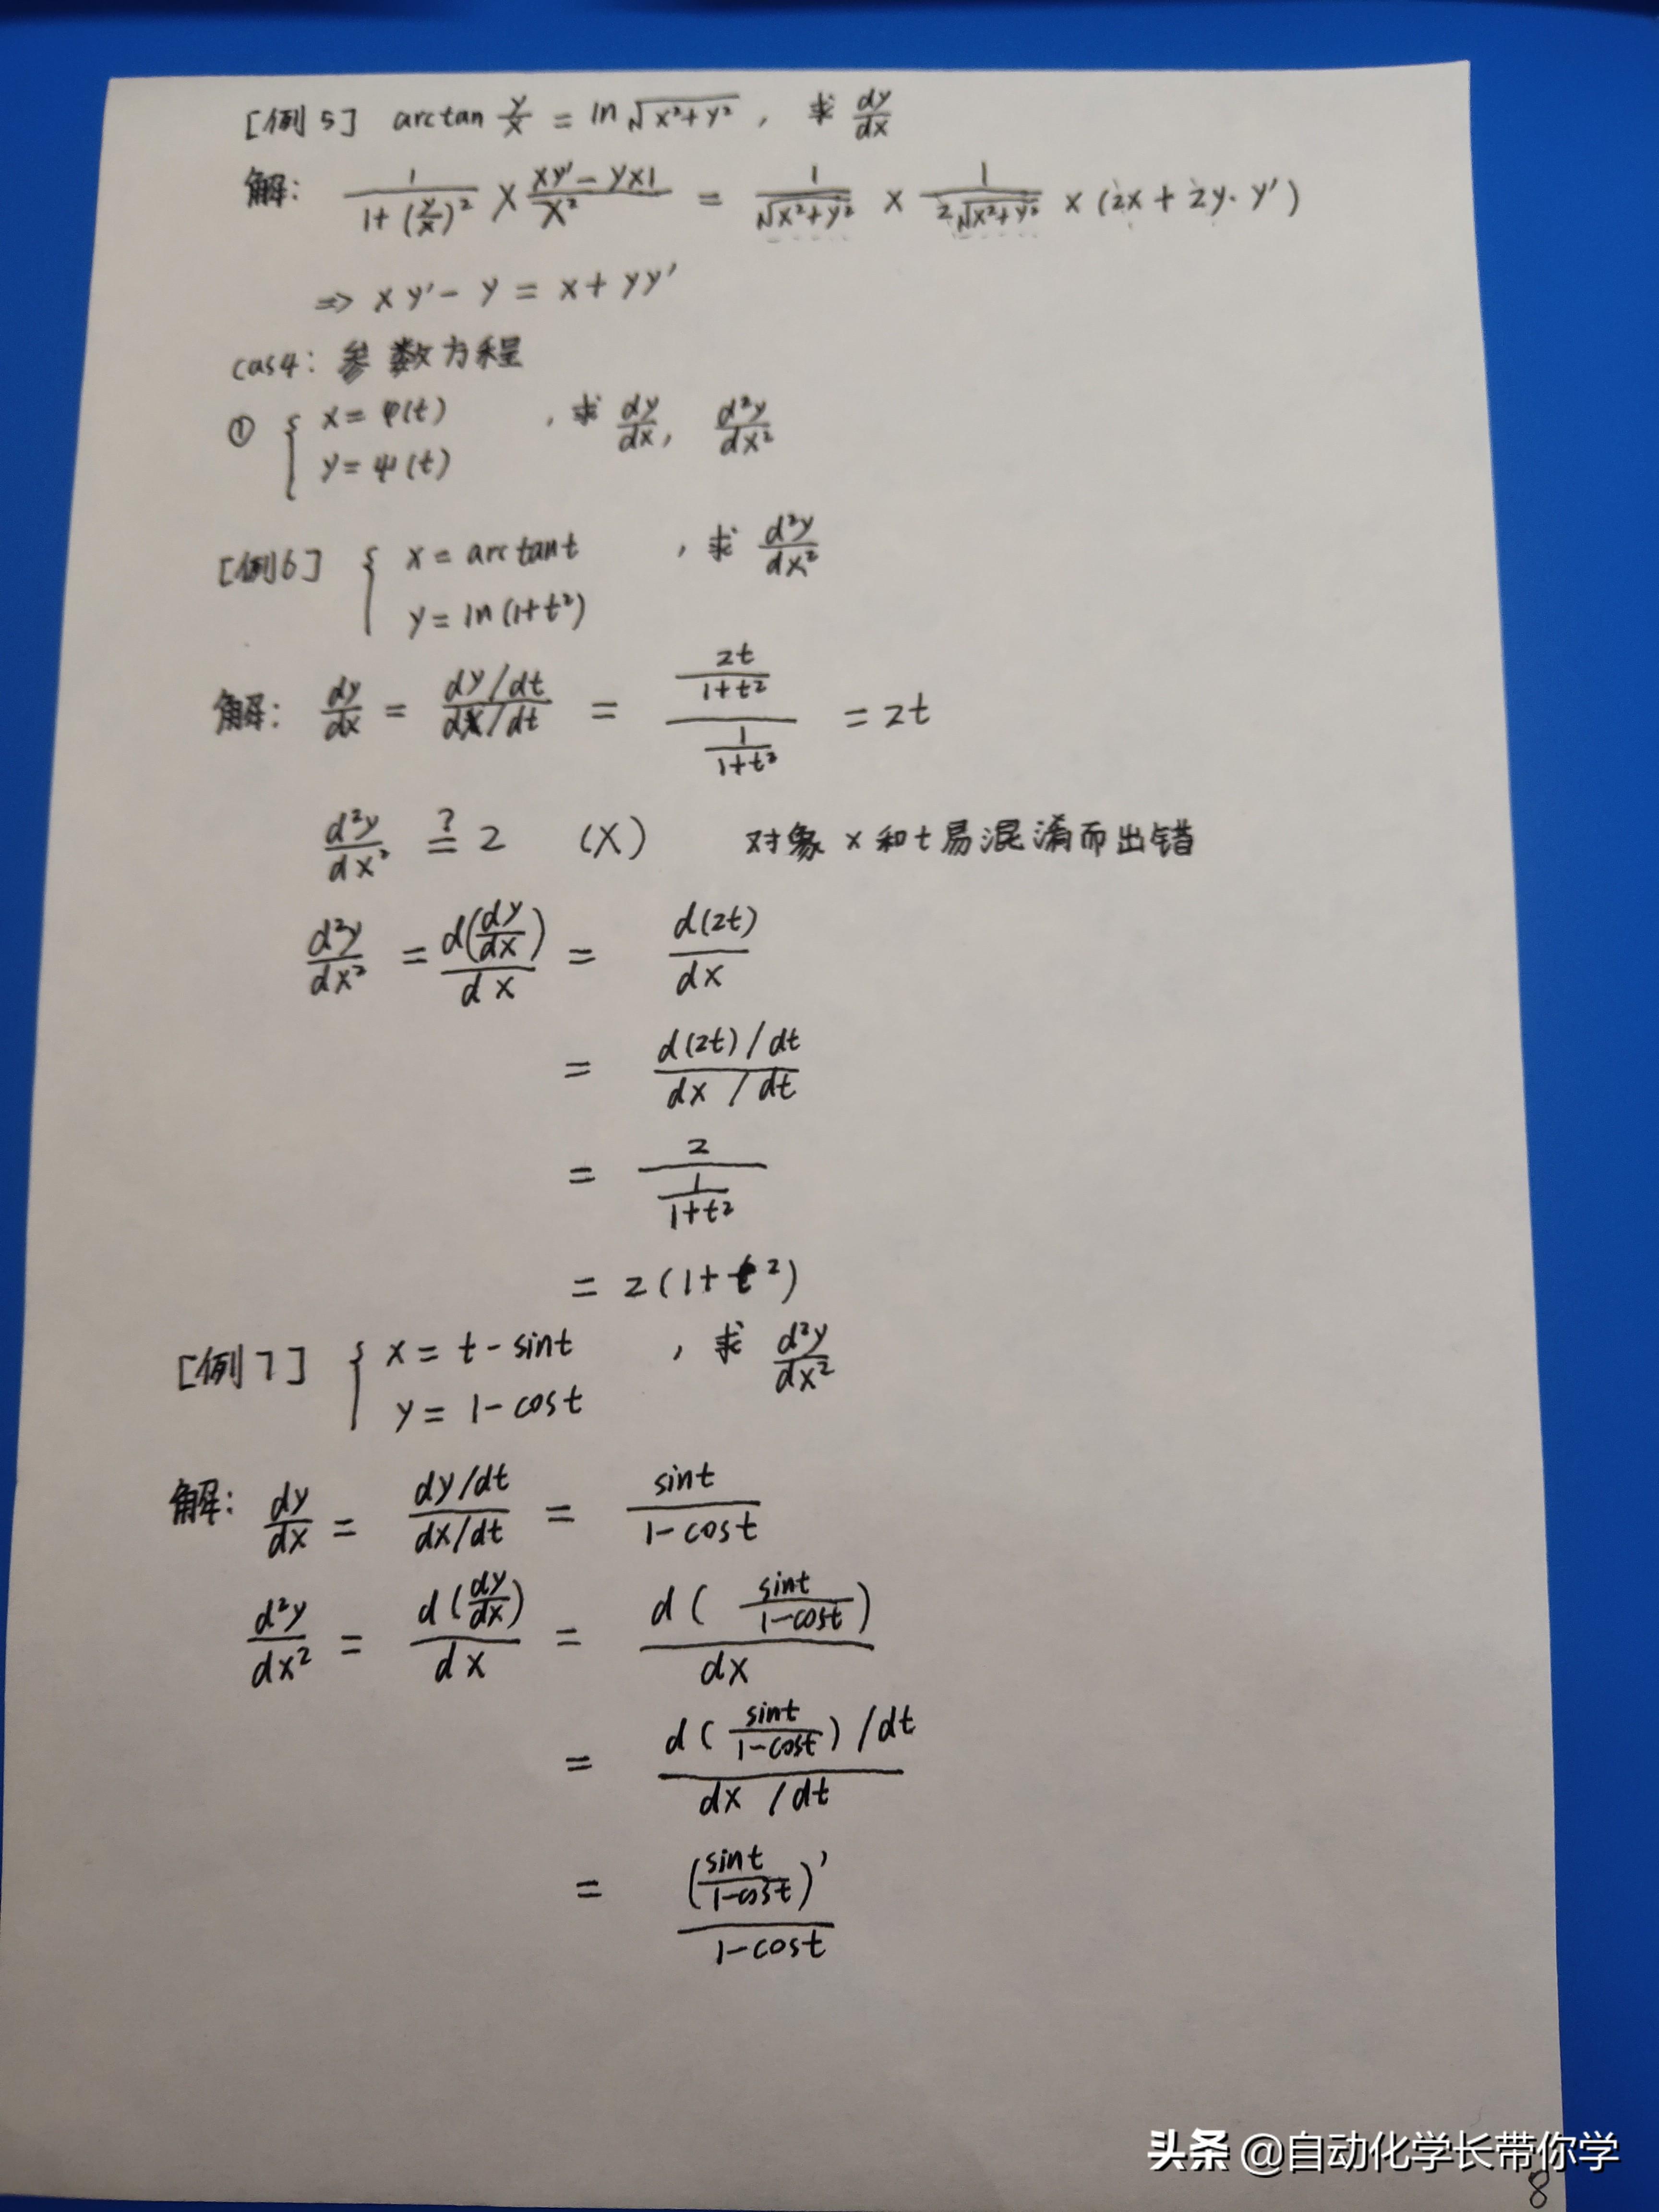 [例5] arctan y/x = ln √(x²+y²), 求 dy/dx
解: 1/(1+(y/x)²) × (xy′-y×1)/x² = 1/√(x²+y²) × 1/(2√(x²+y²)) × (2x+2y·y′)
⇒ xy′-y = x+yy′
cas4: 参数方程
① { x=φ(t) , 求 dy/dx, d²y/dx²
y=ψ(t)
[例6] { x=arctant , 求 d²y/dx²
y=ln(1+t²)
解: dy/dx = (dy/dt)/(dx/dt) = (2t/(1+t²))/(1/(1+t²)) = 2t
d²y/dx² ?= 2 (X) 对象x和t易混淆而出错
d²y/dx² = d(dy/dx)/dx = d(2t)/dx
= (d(2t)/dt)/(dx/dt)
= 2/(1/(1+t²))
= 2(1+t²)
[例7] { x=t-sint , 求 d²y/dx²
y=1-cost
解: dy/dx = (dy/dt)/(dx/dt) = sint/(1-cost)
d²y/dx² = d(dy/dx)/dx = d(sint/(1-cost))/dx
= (d(sint/(1-cost))/dt)/(dx/dt)
= (sint/(1-cost))′/(1-cost)
头条 @自动化学长带你学
8